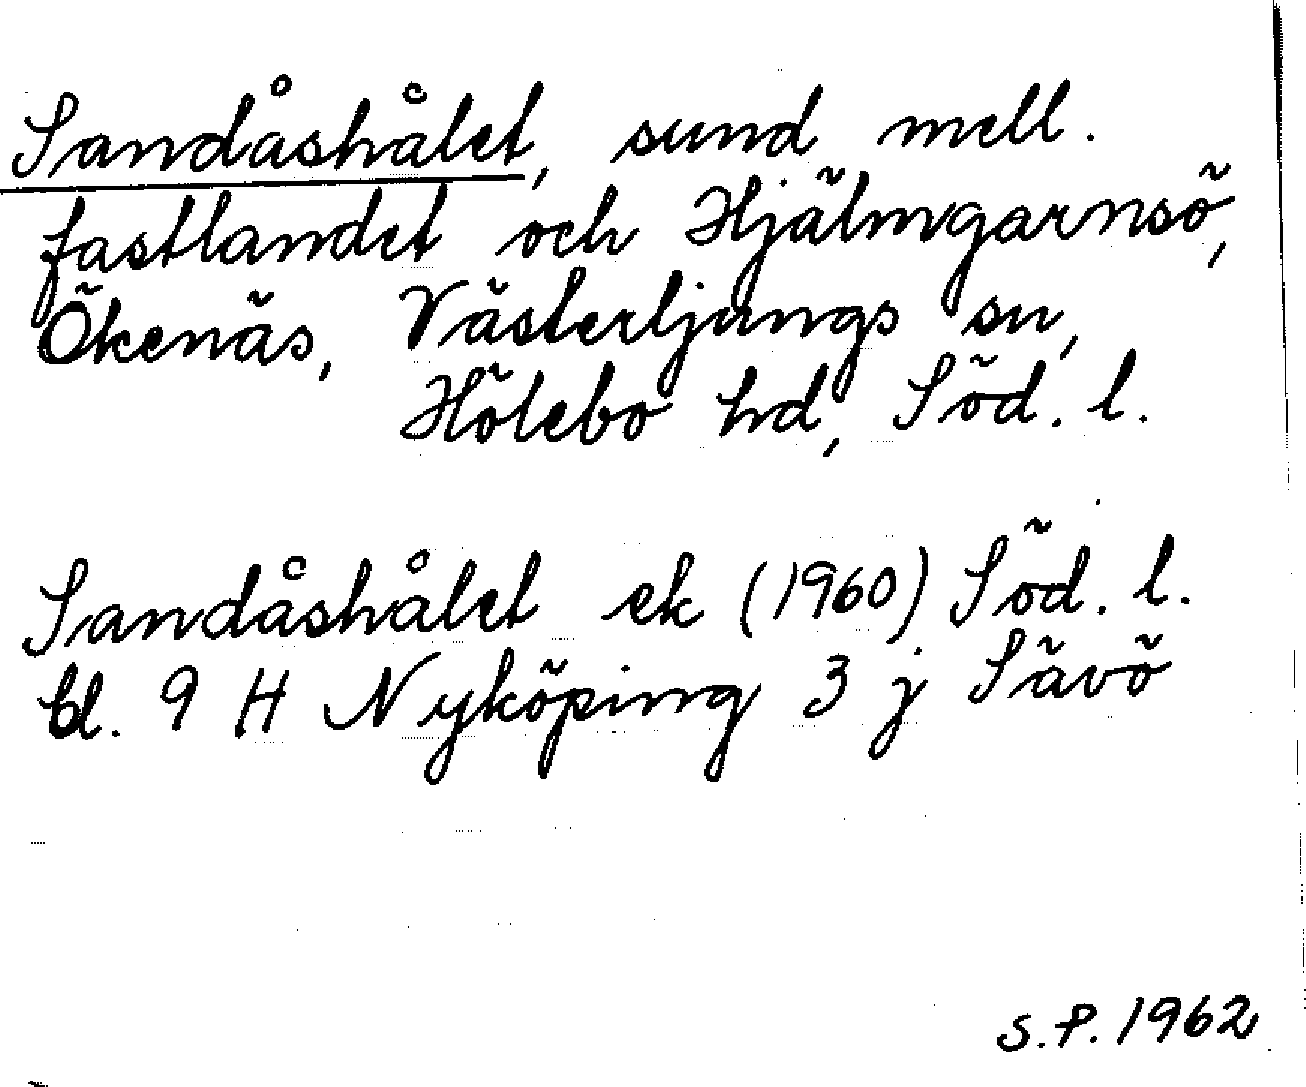 Sandåshålet, sund mell.
fastlandet och Hjälmgarnsö,
Ökenäs, Västerljungs sn,
Hölebo hd, Söd. l.
Sandåshålet ek (1960) Söd. l.
bl. 9 H Nyköping 3 j Sävö
S.P. 1962